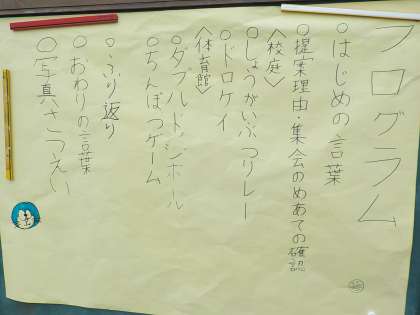 プログラム
○はじめの言葉
○提案理由・集会のめあての確認
〈校庭〉
○しょうがいぶつリレー
○ドロケイ
〈体育館〉
○ダブルドッジボール
○ちんぼつゲーム
○ふり返り
○おわりの言葉
○写真さつえい